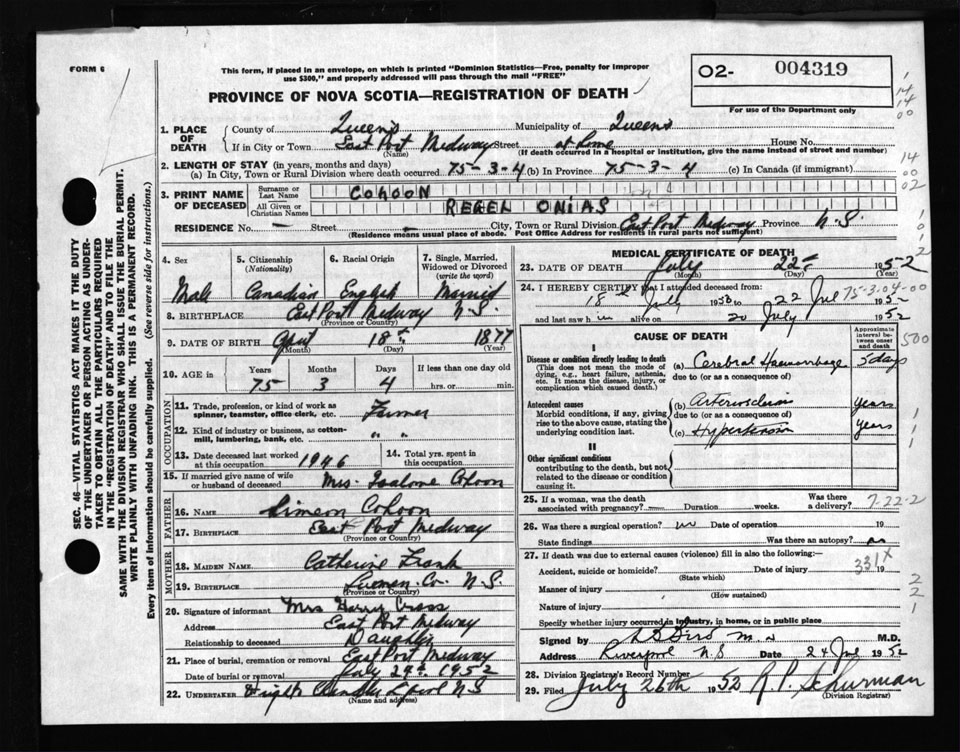 FORM 6
This form, if placed in an envelope, on which is printed "Dominion Statistics—Free, penalty for improper
use $300," and properly addressed will pass through the mail "FREE"
PROVINCE OF NOVA SCOTIA—REGISTRATION OF DEATH
O2- 004319
For use of the Department only
1. PLACE OF DEATH
County of Queen's Municipality of Queen's
If in City or Town East Port Medway Street at home House No.
(Name) (If death occurred in a hospital or institution, give the name instead of street and number)
2. LENGTH OF STAY (in years, months and days)
(a) In City, Town or Rural Division where death occurred 75-3-4 (b) In Province 75-3-4 (c) In Canada (if immigrant)
3. PRINT NAME OF DECEASED
Surname or Last Name COHOON
All Given or Christian Names REGEL ONIAS
RESIDENCE No. — Street — City, Town or Rural Division East Port Medway Province N.S.
(Residence means usual place of abode. Post Office Address for residents in rural parts not sufficient)
4. Sex Male
5. Citizenship (Nationality) Canadian
6. Racial Origin English
7. Single, Married, Widowed or Divorced (write the word) Married
8. BIRTHPLACE East Port Medway N.S.
(Province or Country)
9. DATE OF BIRTH 18th 1877
(Month) (Day) (Year)
10. AGE in Years Months Days If less than one day
75 3 4 hrs. or min.
OCCUPATION
11. Trade, profession, or kind of work as spinner, teamster, office clerk, etc. Farmer
12. Kind of industry or business, as cotton-mill, lumbering, bank, etc. " "
13. Date deceased last worked at this occupation 1946
14. Total yrs. spent in this occupation
15. If married give name of wife or husband of deceased Mrs. Cohoon
FATHER
16. NAME Simeon Cohoon
17. BIRTHPLACE East Port Medway
(Province or Country)
MOTHER
18. MAIDEN NAME Catherine Frank
19. BIRTHPLACE Lunen. Co. N.S.
(Province or Country)
20. Signature of informant Mrs Harry Cross
Address East Port Medway
Relationship to deceased Daughter
21. Place of burial, cremation or removal East Port Medway
Date of burial or removal July 24th 1952
22. UNDERTAKER Chandler L'pool N.S
(Name and address)
MEDICAL CERTIFICATE OF DEATH
23. DATE OF DEATH July 22nd 1952
(Month) (Day) (Year)
24. I HEREBY CERTIFY that I attended deceased from:
18th July 1952 to 22 Jul 1952
75-3-04-00
and last saw h im alive on 20 July 1952
CAUSE OF DEATH
Approximate interval between onset and death
I
Disease or condition directly leading to death
(This does not mean the mode of dying, e.g., heart failure, asthenia, etc. It means the disease, injury, or complication which caused death.)
(a) Cerebral Haemorrhage 5 days
due to (or as a consequence of)
Antecedent causes
Morbid conditions, if any, giving rise to the above cause, stating the underlying condition last.
(b) Arteriosclerosis years
due to (or as a consequence of)
(c) Hypertension years
II
Other significant conditions
contributing to the death, but not related to the disease or condition causing it.
25. If a woman, was the death associated with pregnancy? Duration weeks. Was there a delivery?
7-22-2
26. Was there a surgical operation? no Date of operation 19
State findings Was there an autopsy? no
27. If death was due to external causes (violence) fill in also the following:—
Accident, suicide or homicide? Date of injury 19
(State which)
331X
Manner of injury
(How sustained)
Nature of injury
Specify whether injury occurred in industry, in home, or in public place
Signed by M.D.
Address Liverpool N.S Date 24 Jul 1952
28. Division Registrar's Record Number
29. Filed July 26th 1952 R.P. Schurman
(Division Registrar)
SEC. 46—VITAL STATISTICS ACT MAKES IT THE DUTY
OF THE UNDERTAKER OR PERSON ACTING AS UNDER-
TAKER TO OBTAIN ALL THE PARTICULARS REQUIRED
IN THE "REGISTRATION OF DEATH" AND TO FILE THE
SAME WITH THE DIVISION REGISTRAR WHO SHALL ISSUE THE BURIAL PERMIT.
WRITE PLAINLY WITH UNFADING INK. THIS IS A PERMANENT RECORD.
Every item of information should be carefully supplied. (See reverse side for instructions.)